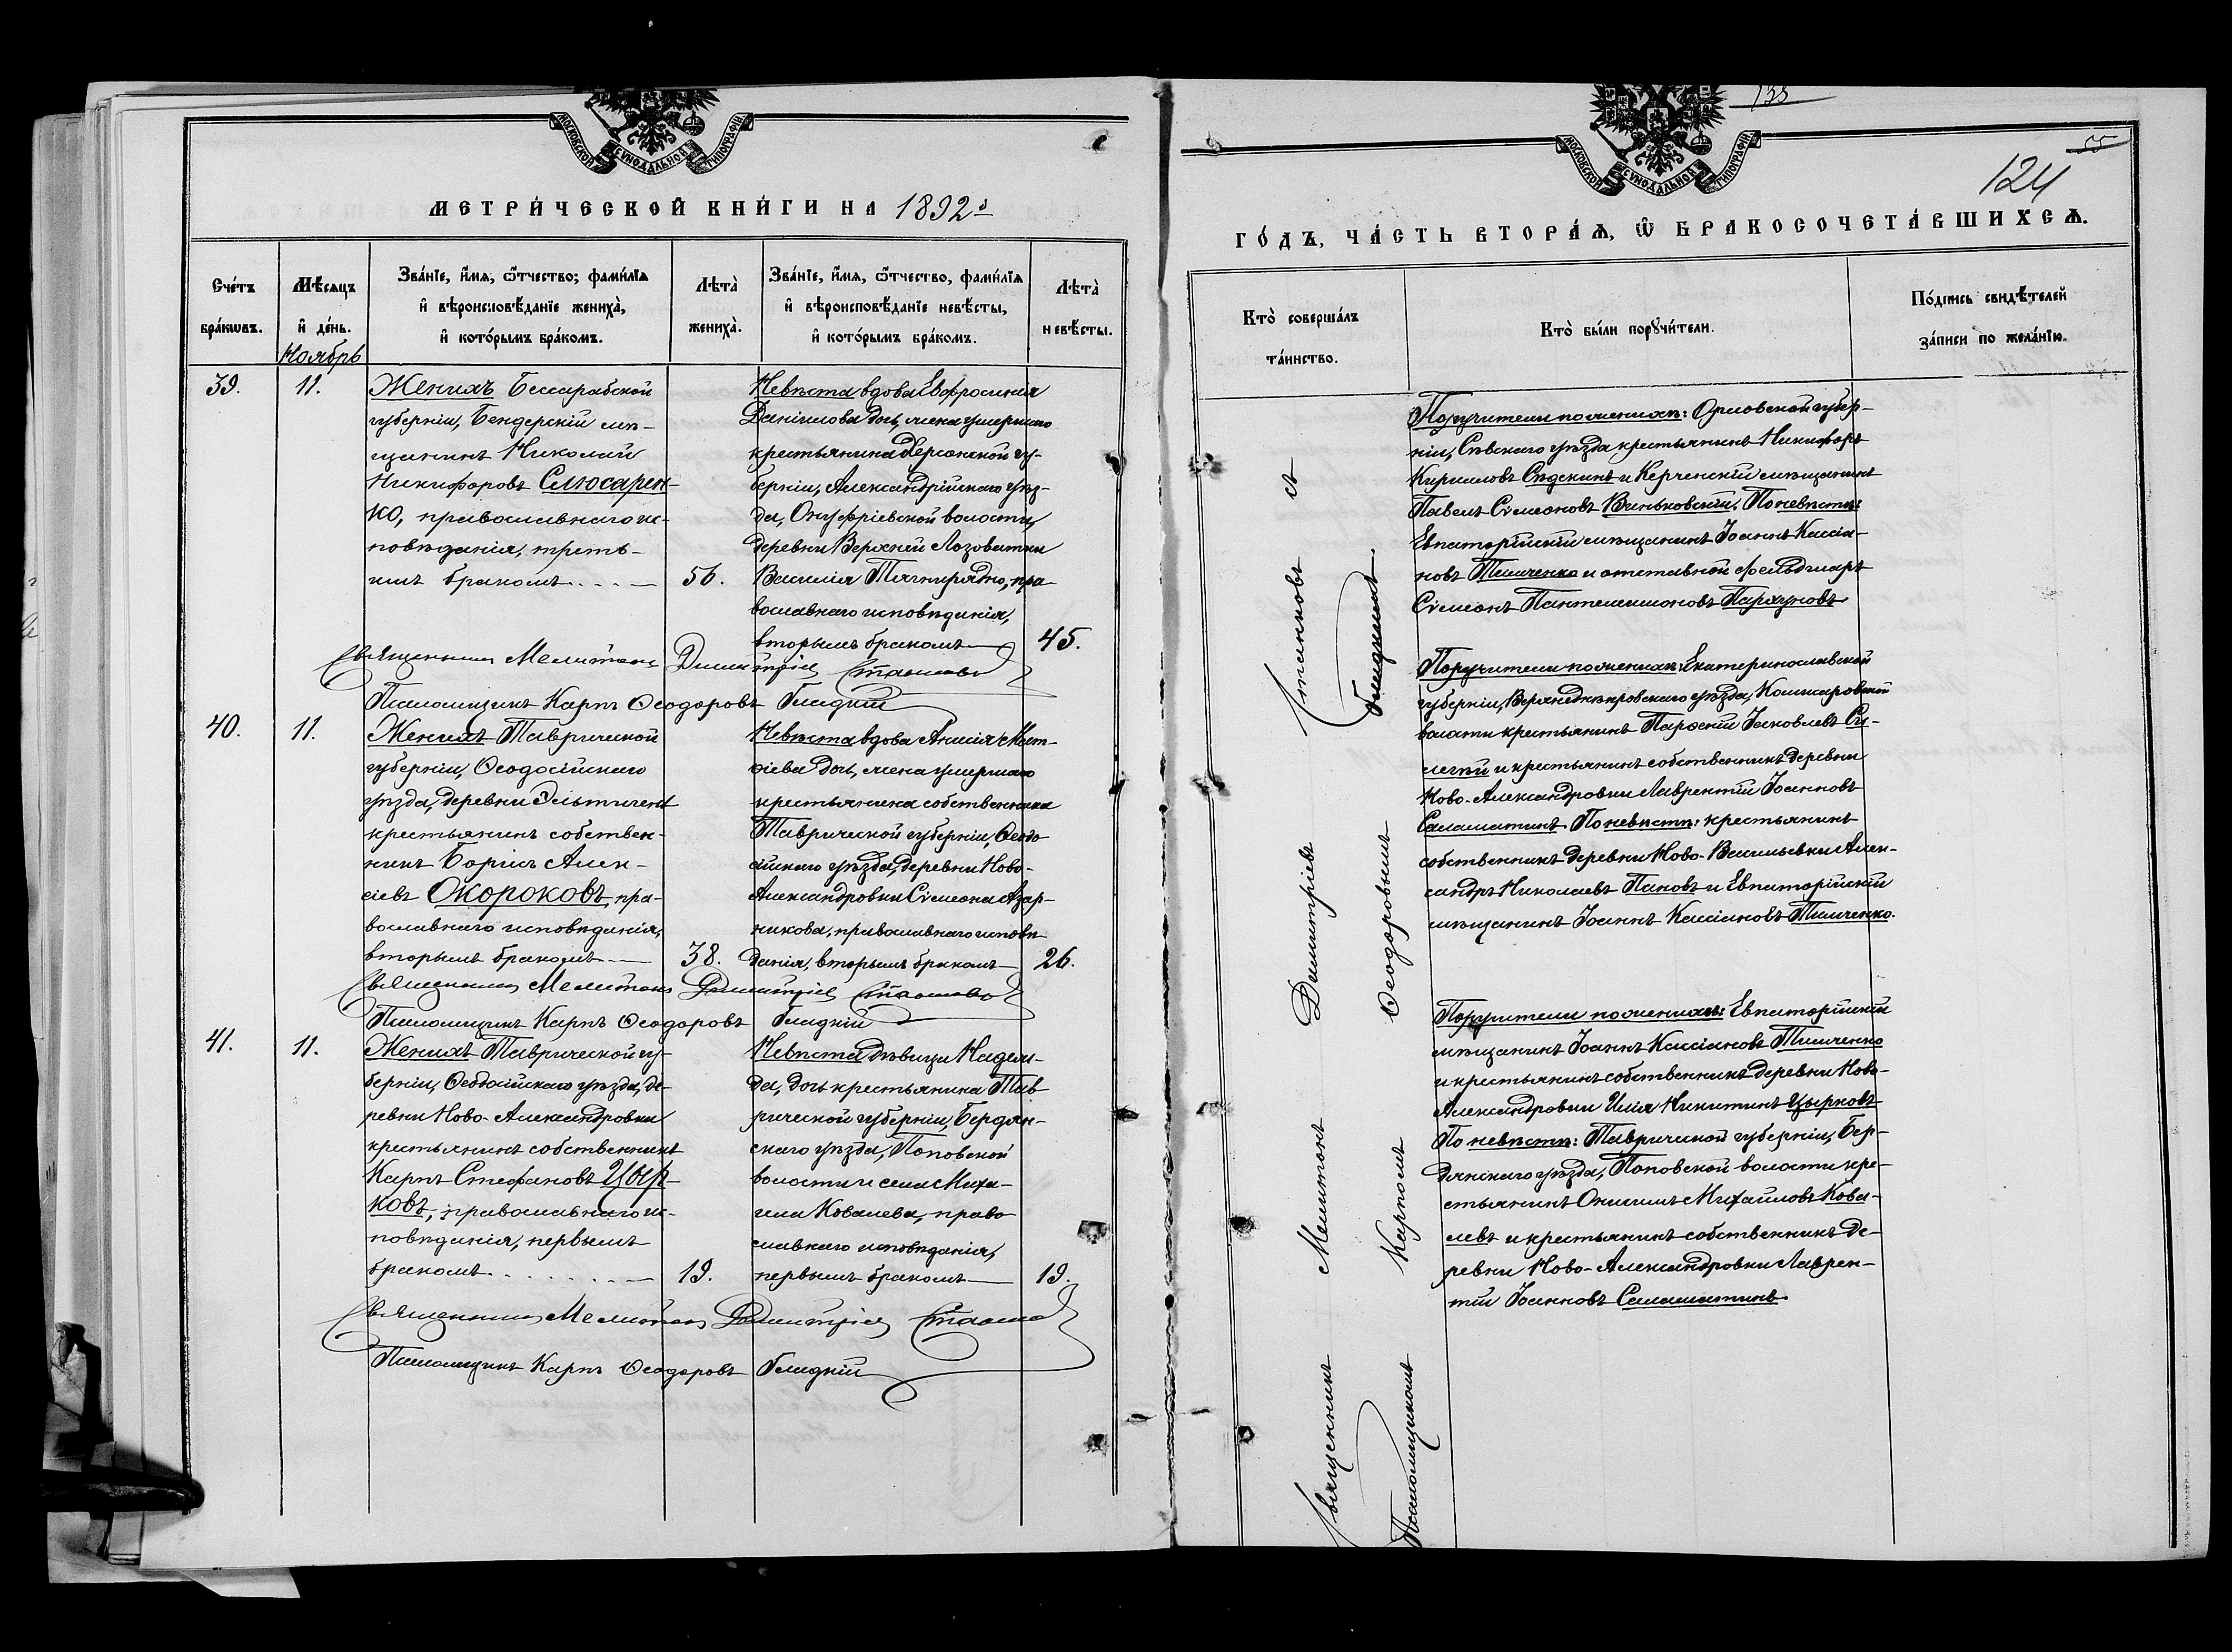 МОСКОВСКОЙ СѴНОДАЛЬНОЙ ТИПОГРАФІИ
МЕТРИ́ЧЕСКОЙ КНИ́ГИ НА 1892
Сче́тъ бра́кωвъ.
Мѣ́сяцъ и҆ де́нь.
Зва́нїе, и҆́мѧ, ѻ҆́тчество, фами́лїѧ
и҆ вѣроисповѣ́данїе жениха̀,
и҆ кото́рымъ бра́комъ.
Лѣта̀ жениха̀.
Зва́нїе, и҆́мѧ, ѻ҆́тчество, фами́лїѧ
и҆ вѣроисповѣ́данїе невѣ́сты,
и҆ кото́рымъ бра́комъ.
Лѣта̀ невѣ́сты.
Ноябрь
39.
11.
Женихъ Бессарабской
губерніи, Бендерскій мѣ-
щанинъ Николай
Никифоровъ Слюсарен-
ко, православнаго ис-
повѣданія, треть-
имъ бракомъ....
56.
Невѣста вдова Евфросинія
Даніилова дочь, жена умершаго
крестьянина Херсонской гу-
берніи, Александрійскаго уѣз-
да, Онуфріевской волости,
деревни Верхней Лозоватки
Василія Тягнирядно, пра-
вославнаго исповѣданія,
вторымъ бракомъ
45.
Священникъ Мелитонъ Димитріевъ Станковъ
Псаломщикъ Карпъ Ѳеодоровъ Блидкій
40.
11.
Женихъ Таврической
губерніи, Ѳеодосійскаго
уѣзда, деревни Эльтигенъ
крестьянинъ собствен-
никъ Борисъ Алек-
сіевъ Окороковъ, пра-
вославнаго исповѣданія,
вторымъ бракомъ
38.
Невѣста вдова Анисія Мат-
ѳіева дочь, жена умершаго
крестьянина собственника
Таврической губерніи, Ѳеодо-
сійскаго уѣзда, деревни Ново-
Александровки Сімеона Азар-
никова, православнаго исповѣ-
данія, вторымъ бракомъ
26.
Священникъ Мелитонъ Димитріевъ Станковъ
Псаломщикъ Карпъ Ѳеодоровъ Блидкій
41.
11.
Женихъ Таврической гу-
берніи, Ѳеодосійскаго уѣзда, де-
ревни Ново-Александровки
крестьянинъ собственникъ
Карпъ Стефановъ Цыр-
ковъ, православнаго ис-
повѣданія, первымъ
бракомъ........
19.
Невѣста дѣвица Надеж-
да, дочь крестьянина Тав
рической губерніи, Бердян-
скаго уѣзда, Поповской
волости и села Миха-
ила Ковалева, право
славнаго исповѣданія,
первымъ бракомъ
19.
Священникъ Мелитонъ Димитріевъ Станковъ
Псаломщикъ Карпъ Ѳеодоровъ Блидкій
МОСКОВСКОЙ СѴНОДАЛЬНОЙ ТИПОГРАФІИ
124
ГО́ДЪ, ЧА́СТЬ ВТОРА́Ѧ, Ѡ҆ БРАКОСОЧЕТА́ВШИХСѦ.
Кто̀ соверша́лъ
та́инство.
Кто̀ бы́ли порꙋчи́тели.
По́дпись свидѣ́телей
за́писи по жела́нїю.
Священникъ Мелитонъ Димитріевъ Станковъ съ
Псаломщикомъ Карпомъ Ѳеодоровымъ Блидкимъ.
Поручители по женихѣ: Орловской губер-
ніи, Сѣвскаго уѣзда крестьянинъ Никифоръ
Кирилловъ Сѣдскинъ и Керченскій мѣщанинъ
Павелъ Сімеоновъ Виньковскій. По невѣстѣ:
Евпаторійскій мѣщанинъ Іоаннъ Кассіа-
новъ Тимченко и отставной фельдшаръ
Сімеонъ Пантелеимоновъ Парахуновъ
Поручители по женихѣ: Екатеринославской
губерніи, Верхнеднѣпровскаго уѣзда, Комисаровской
волости крестьянинъ Парѳеній Іаковлевъ
и крестьянинъ собственникъ деревни
Ново-Александровки Лаврентій Іоанновъ
Саламатинъ. По невѣстѣ: крестьянинъ
собственникъ деревни Ново-Васильевки Алек-
сандръ Николаевъ Пановъ и Евпаторійскій
мѣщанинъ Іоаннъ Кассіановъ Тимченко.
Поручители по женихѣ: Евпаторійскій
мѣщанинъ Іоаннъ Кассіановъ Тимченко
и крестьянинъ собственникъ деревни Ново-
Александровки Илія Никитинъ Цырковъ
По невѣстѣ: Таврической губерніи, Бер-
дянскаго уѣзда, Поповской волости кре-
стьянинъ Онисимъ Михаиловъ Кова-
левъ и крестьянинъ собственникъ де-
ревни Ново-Александровки Лаврен-
тій Іоанновъ Саламатинъ.